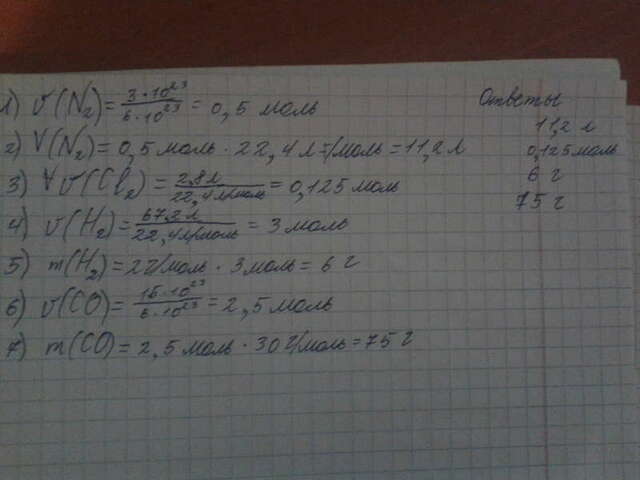 1) ν(N₂) = 3·10²³ / 6·10²³ = 0,5 моль
2) V(N₂) = 0,5 моль · 22,4 л/моль = 11,2 л
3) ν(Cl₂) = 2,8 л / 22,4 л/моль = 0,125 моль
4) ν(H₂) = 67,2 л / 22,4 л/моль = 3 моль
5) m(H₂) = 2 г/моль · 3 моль = 6 г
6) ν(CO) = 15·10²³ / 6·10²³ = 2,5 моль
7) m(CO) = 2,5 моль · 30 г/моль = 75 г
Ответы
11,2 л
0,125 моль
6 г
75 г